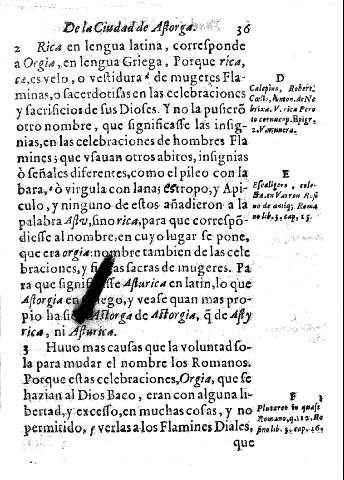 De la Ciudad de Astorga. 36
2 Rica en lengua latina, corresponde
a Orgia, en lengua Griega, Porque rica,
cæ, es velo, o vestidura de mugeres Fla-
minas, o sacerdotisas en las celebraciones
y sacrificios de sus Dioses. Y no la pusierõ
otro nombre, que significasse las insig-
nias, en las celebraciones de hombres Fla
mines; que vsauan otros abitos, insignias
ò señales diferentes, como el pileo con la
bara, ò virgula con lana; estropo, y Api-
culo, y ninguno de estos añadieron a la
palabra Astu, sino rica, para que correspõ-
diesse al nombre, en cuyo lugar se pone,
que era orgia: nombre tambien de las cele
braciones, y sacras de mugeres. Pa
ra que Asturica en latin, lo que
Astorgia en y vease quan mas pro-
pio Astorga de Astorgia, q̃ de Asty
rica, ni Asturica.
3 Huuo mas causas que la voluntad so-
la para mudar el nombre los Romanos.
Porque estas celebraciones, Orgia, que se
hazian al Dios Baco, eran con alguna li-
bertad, y excesso, en muchas cosas, y no
permitido, y verlas a los Flamines Diales,
que
D
Calepino, Robert.
Anton. de Ne
brixa. V. rica Pero
to cornucop. Epigr.
2.
E
Escaligero, colo-
en Varron Rosi
no de antiq; Roma
no lib. 3. cap. 15.
F
Plutarco in quæst
Romano, q. 112. Ro
sino lib. 3. cap. 16.